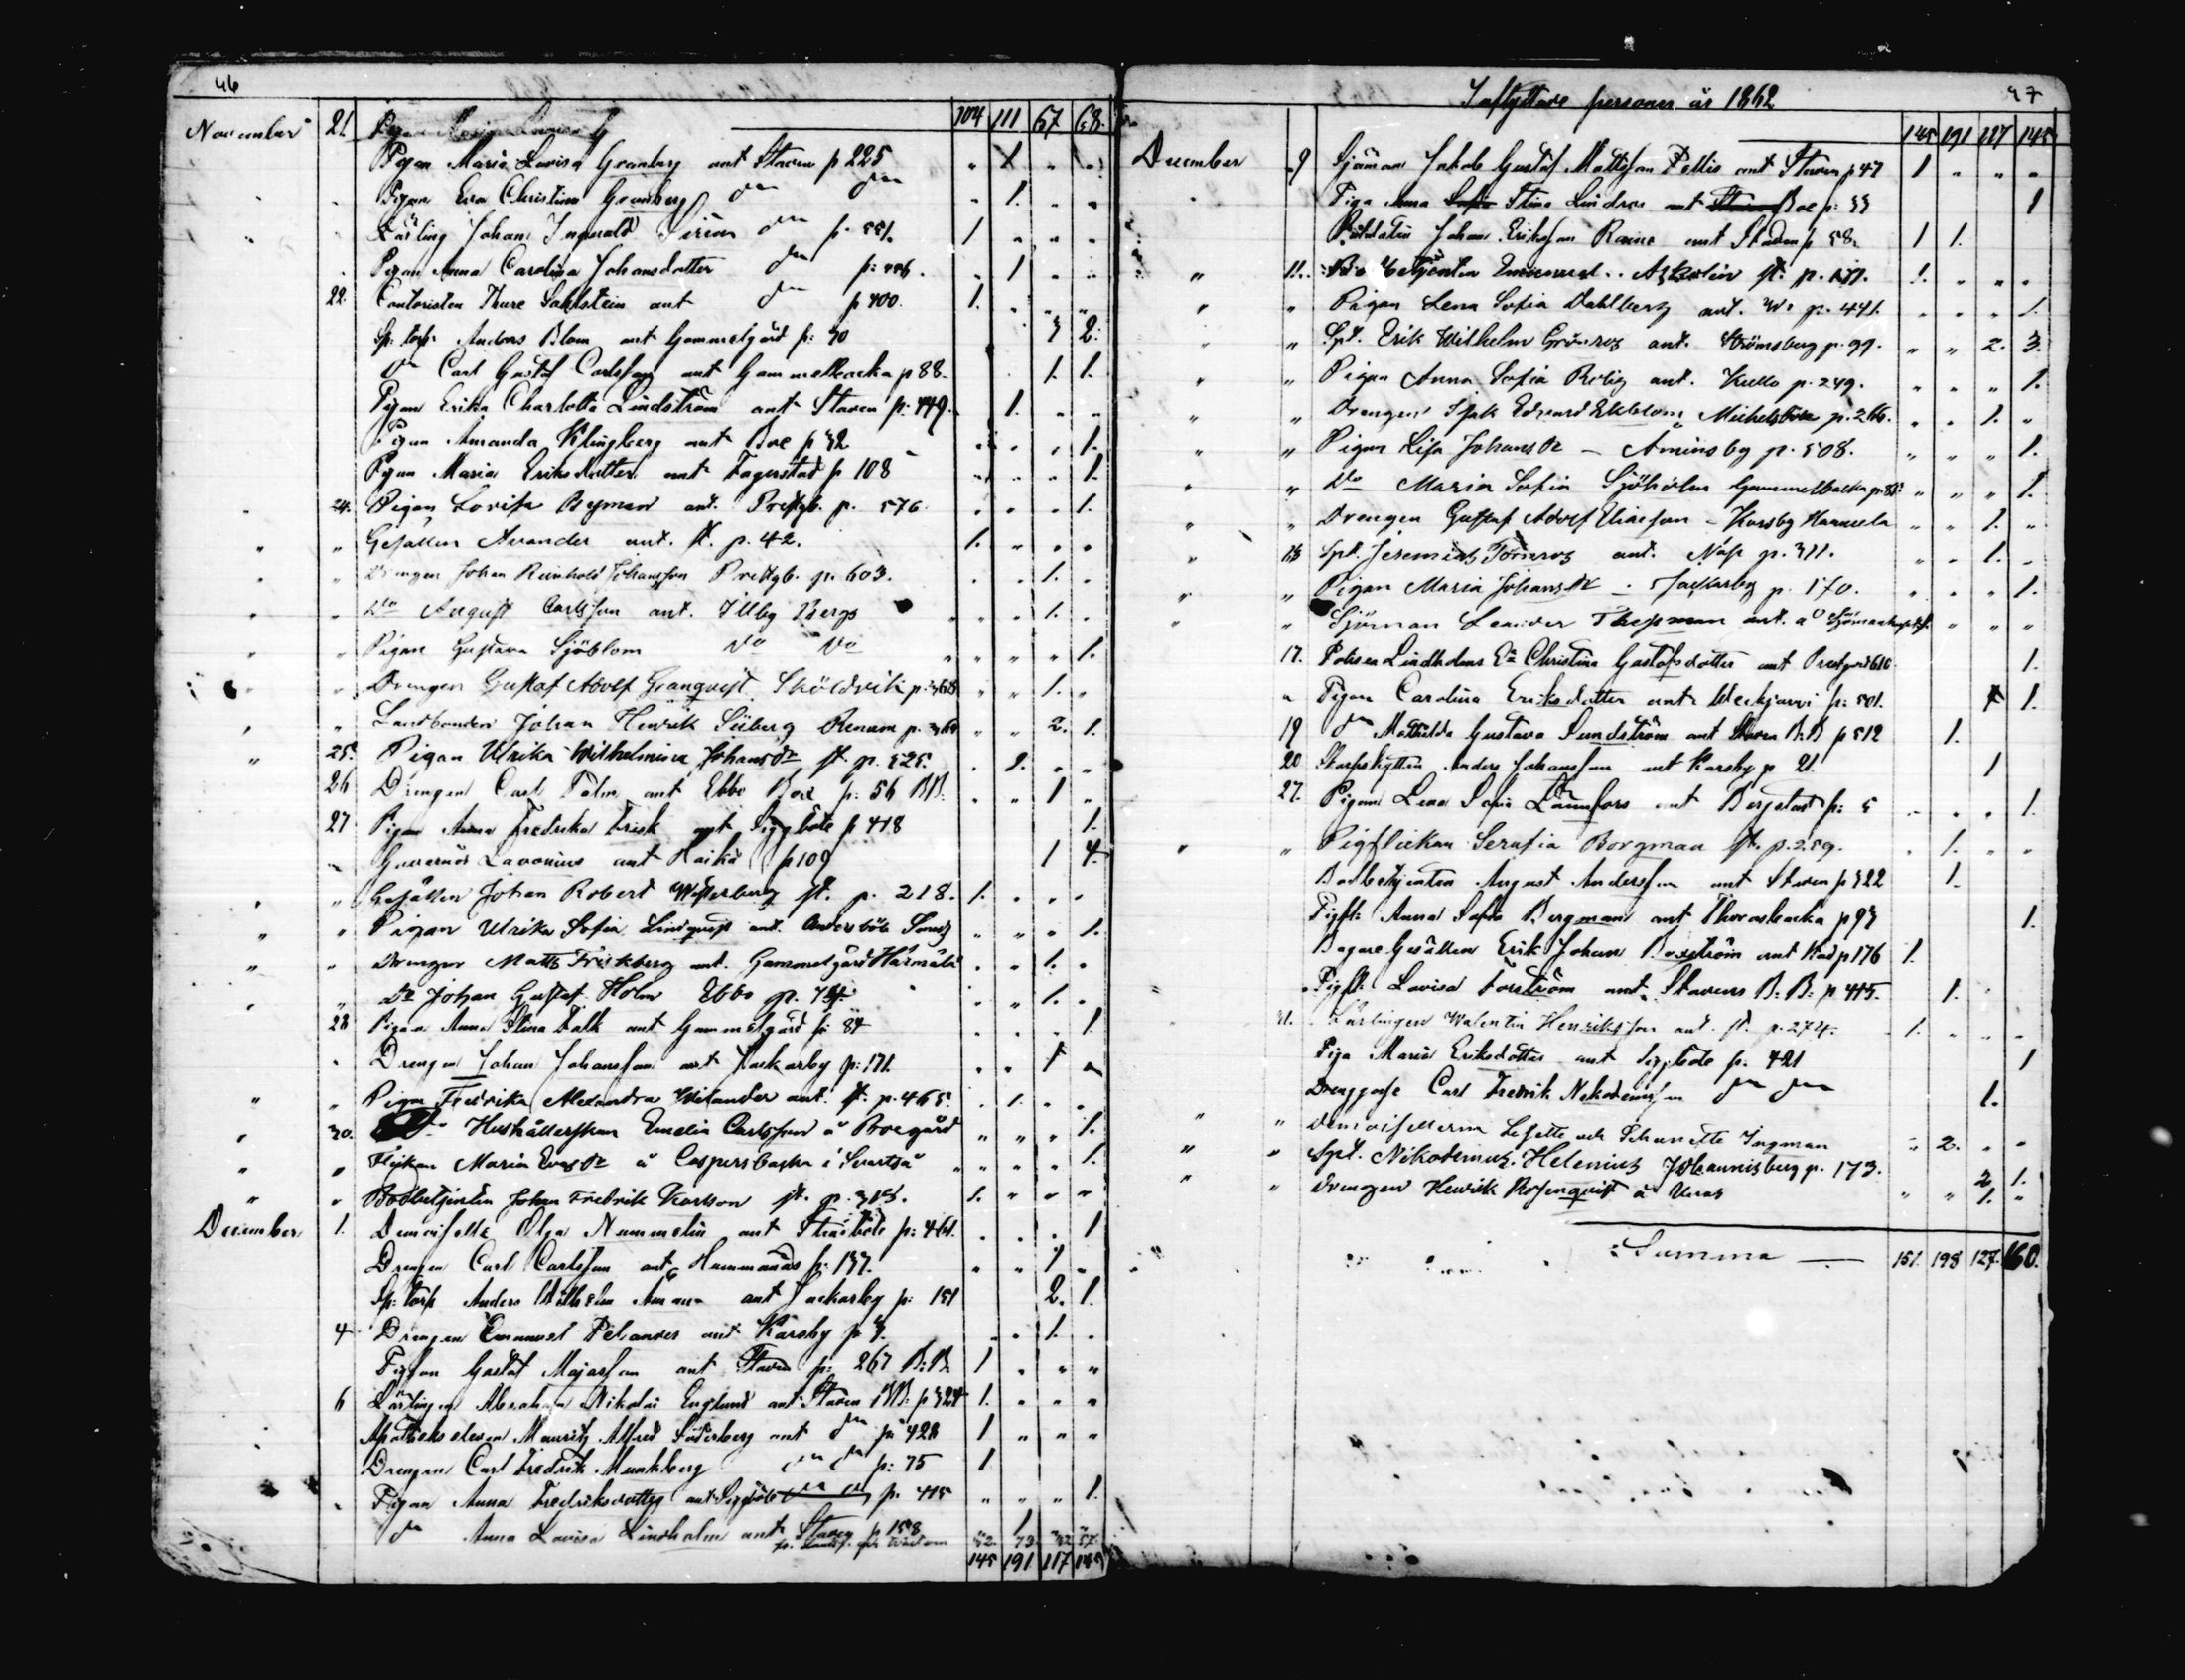 46
104 111 67 68.
November 21.
Pigan Maria Lovisa Granberg ant Staden p 225 " 1 " "
Pigan Eva Christina Granberg do do " 1. " "
Lärling Johan Ingvald Sirén do p. 551. 1 " " "
Pigan Anna Carolina Johansdotter do p: 446. " 1 " "
22. Contoristen Thure Sahlstein ant do p 400. 1. " " "
Sp: torp: Anders Blom ant Gammelgård p: 30 3 2.
do Carl Gustaf Carlsson ant Gammelbacka p 88. 1. 1.
Pigan Erika Charlotta Lindström ant Staden p: 449. 1. " "
Pigan Amanda Klingberg ant Boe p 32 " " " 1.
Pigan Maria Eriksdotter ant Fagerstad p 108 " " " 1.
" 24. Pigan Lovisa Bryman ant. Prestgb. p. 576. " " " 1.
" " Gesällen Avander ant. st. p. 42. 1. " " "
" " Drengen Johan Reinhold Johansson Prestgb. p. 603. " " 1. "
" " Do August Carlsson ant. Illby Bergs " " 1. "
" " Pigan Gustava Sjöblom Do Do " " " 1.
" " Drengen Gustaf Adolf Granqvist Sköldvik p. 368 " " 1. "
" " Landbonden Johan Henrik Siiberg Renum p. 364 " " 2. 1.
" 25. Pigan Ulrika Wilhelmina Johansdr st. p. 525. " 1. " "
26 Drengen Carl Palm ant Ebbo Boe p: 56 BB. " " 1 "
27 Pigan Anna Fredrika Frisk ant Siggböle p 418 1.
" Guvernör Lavonius ant Haiko p 109 1 4.
" " Gesällen Johan Robert Westerberg st. p. 218. 1. " " "
" " Pigan Ulrika Sofia Lindqvist ant. Andersböle " " " 1.
" " Drengen Matts Frickberg ant. Gammelgård Härmälä " " 1. "
" " Do Johan Gustaf Holm Ebbo p. 74. " " 1. "
28 Pigan Anna Stina Falk ant Gammelgård p: 84 " " " 1
" Drengen Johan Johansson ant Jackarby p: 171. " " 1 "
" " Pigan Fredrika Alexandra Welander ant. st. p. 465. " 1. " "
" 30. Hushållerskan Emelia Carlsson å Boegård " " " 1.
" " Flickan Maria Evasdr å Caspersbacka i Svartså " " " 1.
" " Bodbetjenten Johan Fredrik Karlson st. p. 1. " " "
December 1. Demoiselle Olga Nummelin ant Strusböle p: 461. " " " 1
Drengen Carl Carlsson ant Hummanäs p: 137. " " 1 "
Sp: torp Anders Wilhelm ant Jackarby p: 151 2. 1.
4 Drengen Emanuel Pelander ant Karsby p 3. " " 1. "
Gustaf Majasson ant Staden p: 267 B:B. 1 " " "
6 Lärlingen Abraham Nikolai Englund ant Staden BB: p 324 1. " " "
Apotekseleven Mauritz Alfred Söderberg ant do p: 428 1 " " "
Drengen Carl Fredrik Munkberg do do p: 75 1
" Pigan Anna Fredriksdotter ant Siggböle p. 415 " " " 1.
do Anna Lovisa Lindholm ant Staden p 158 1
145 191 117 145
Inflyttade personer år 1862 47
145 191 117 145
December 9 Sjöman Jakob Gustaf Mattsson Pellis ant Staden p 47 1 " " "
Piga Anna Stina Lindros ant Boe p: 33 1
Johan Eriksson Raine ant Staden p 58. 1 1.
" 11. Betjenten Emanuel st. p. 1. " " "
" " Pigan Lena Sofia Dahlberg ant. Do p. 441. " " " 1.
" " Spt. Erik Wilhelm Grönros ant. Strömsberg p. 99. " " 2. 3.
" " Pigan Anna Sofia Rolig ant. Kullo p. 249. " " " 1.
" " Drengen Isak Edvard Ekblom " Michelsböle p. 266. " " 1. "
" " Pigan Lisa Johansdr – Aminsby p. 508. " " " 1.
" " Do Maria Sofia Sjöholm Gammelbacka p. 83. " " " 1.
" " Drengen Gustaf Adolf Eliasson – Karsby " " 1. "
" 13 Spt. Jeremias Törnros ant. Näse p. 311. " " 1. "
" " Pigan Maria Johansdr – Jackarby p. 170. " " " 1.
" " Sjöman Leander ant. " " "
17. Lindholms Ea Christina Gustafsdotter ant Prestgård 616. 1.
" Pigan Carolina Eriksdotter ant Weckjärvi p: 501. 1.
19 do Mathilda Gustava Sundström ant Staden B:B p 512 1.
20 Skarpskytten Anders Johansson ant Karsby p 21. 1
27. Pigan Lena Sofia Lönnfors ant Borgstad p: 5 " " " 1.
" " Pigflickan Serafia Borgman st. p. 259. " 1. " "
Bodbetjenten August Andersson ant Staden p 322 1.
Pigfl: Anna Sofia Bergman ant Thorasbacka p 93 1.
Bagare Gesällen Erik Johan Boxström ant Stad p 176 1.
Pigfl: Lovisa Forström ant Stadens B:B: p 415. 1.
31. Lärlingen Walentin Henriksson ant. st. p. 274. 1. " " "
Piga Maria Eriksdotter ant Siggböle p. 421 1
Drenggosse Carl Fredrik Nikodemusson do do 1.
" " Demoisellerna Lisette och Jeanette Ingman " 2. " "
" " Spt. Nikodemus Helenius Johannisberg p. 173. 2 1.
" " Drengen Henrik Rosenqvist å " " 1. "
Summa — 151. 198 127. 160.